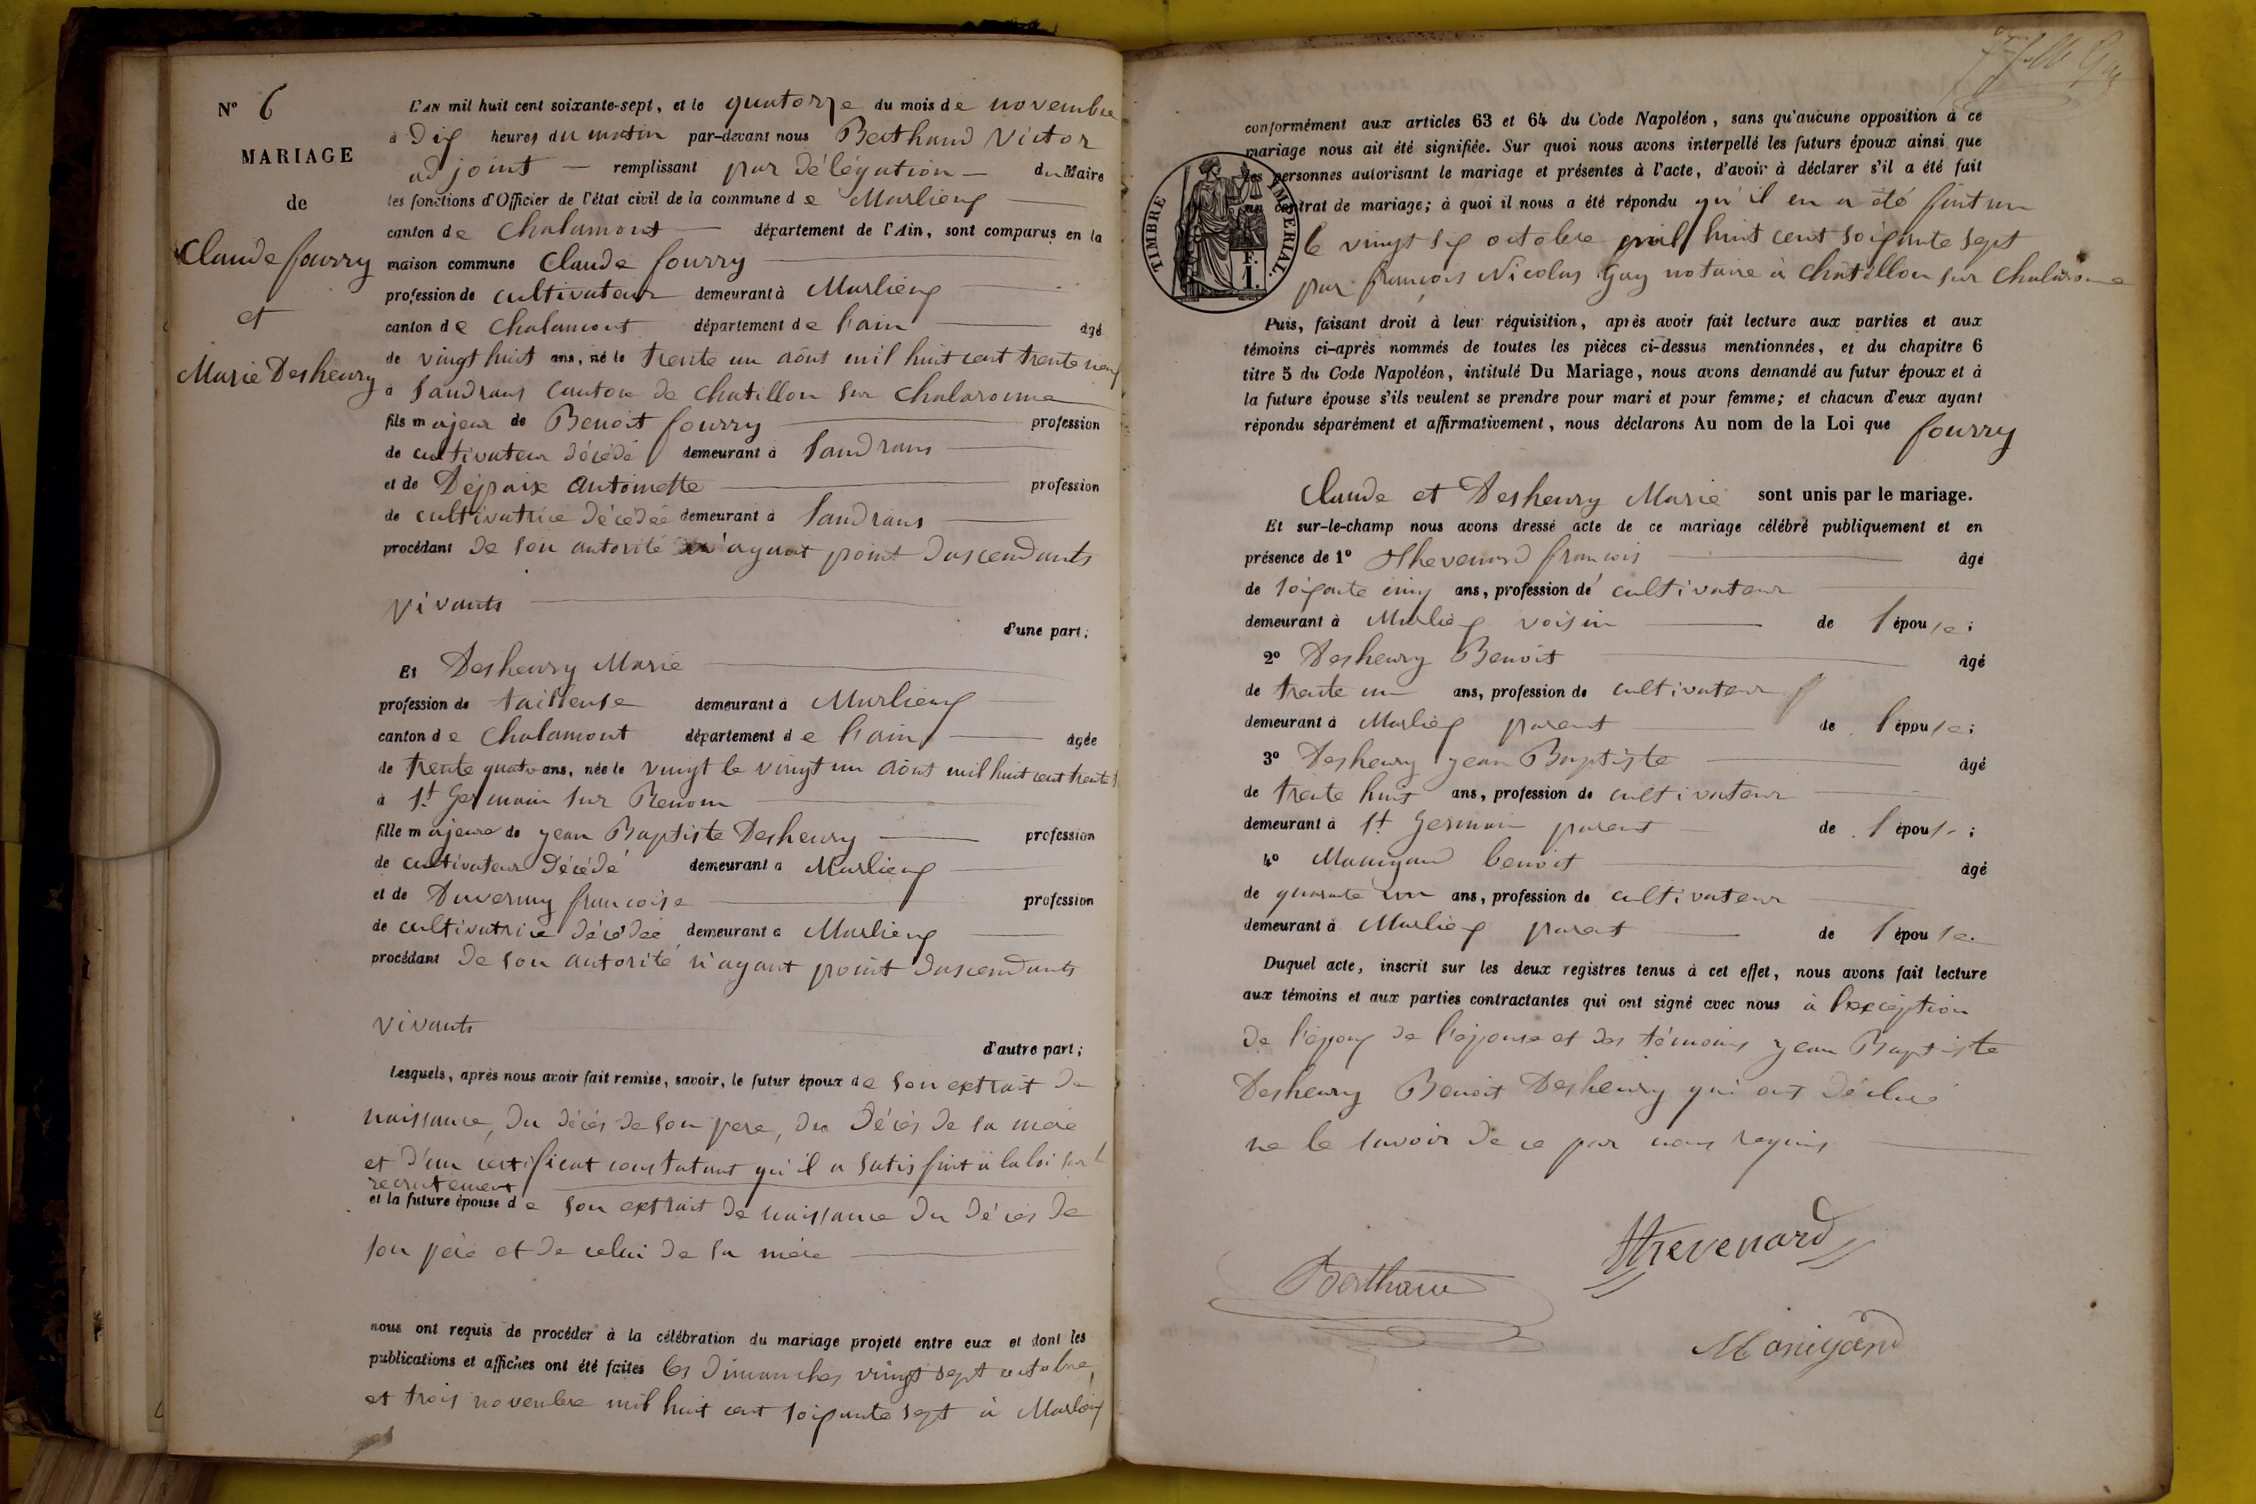 N° 6
MARIAGE
de
Claude fourry
et
Marie Desheury
L'AN mil huit cent soixante-sept, et le quatorze du mois de novembre
à dix heures du matin par-devant nous Berthaud Victor
adjoint — remplissant par délégation — du Maire
les fonctions d'Officier de l'état civil de la commune de Marlieux
canton de Chalamont département de l'Ain, sont comparus en la
maison commune Claude fourry
profession de cultivateur demeurant à Marlieux
canton de Chalamont département de l'ain âgé
de vingt huit ans, né le trente un août mil huit cent trente neuf
à Sandrans canton de Chatillon sur Chalaronne
fils majeur de Benoit fourry profession
de cultivateur décédé demeurant à Sandrans
et de Antoinette profession
de cultivatrice décédée demeurant à Sandrans
procédant de son autorité n'ayant point dascendants
vivants
d'une part;
Et Desheury Marie
profession de tailleuse demeurant à Marlieux
canton de Chalamont département de l'ain âgée
de trente quatre ans, née le vingt le vingt un août mil huit cent trente
à St Germain sur Renom
fille majeure de jean Baptiste Desheury profession
de cultivateur décédé demeurant à Marlieux
et de Duvernay francoise profession
de cultivatrice décédée demeurant à Marlieux
procédant de son autorité n'ayant point dascendants
vivants
d'autre part;
Lesquels, après nous avoir fait remise, savoir, le futur époux de son extrait de
naissance, du décés de son pere, du décés de sa mère
et d'un certificat constatant qu'il a satisfait à la loi sur l
recrutement
et la future épouse de son extrait de naissance du décès de
son père et de celui de sa mère
nous ont requis de procéder à la célébration du mariage projeté entre eux et dont les
publications et affiches ont été faites les dimanches vingt sept octobre,
et trois novembre mil huit cent soixante sept à Marlieux
conformément aux articles 63 et 64 du Code Napoléon, sans qu'aucune opposition à ce
mariage nous ait été signifiée. Sur quoi nous avons interpellé les futurs époux ainsi que
les personnes autorisant le mariage et présentes à l'acte, d'avoir à déclarer s'il a été fait
un contrat de mariage; à quoi il nous a été répondu qu'il en a été fait un
TIMBRE IMPÉRIAL.
F.
1.
le vingt six octobre mil huit cent soixante sept
par françois Nicolas Gay notaire à Châtillon sur Chalaronne
Puis, faisant droit à leur réquisition, après avoir fait lecture aux parties et aux
témoins ci-après nommés de toutes les pièces ci-dessus mentionnées, et du chapitre 6
titre 5 du Code Napoléon, intitulé Du Mariage, nous avons demandé au futur époux et à
la future épouse s'ils veulent se prendre pour mari et pour femme; et chacun d'eux ayant
répondu séparément et affirmativement, nous déclarons Au nom de la Loi que fourry
Claude et Desheury Marie sont unis par le mariage.
Et sur-le-champ nous avons dressé acte de ce mariage célébré publiquement et en
présence de 1° Thevenard françois âgé
de soixante cinq ans, profession de cultivateur
demeurant à Marlieux voisin de l'épouse;
2° Desheury Benoit âgé
de trente un ans, profession de cultivateur
demeurant à Marlieux parent de l'épouse;
3° Desheury jean Baptiste âgé
de trente huit ans, profession de cultivateur
demeurant à St Germain parent de l'épouse;
4° Manigand benoit âgé
de quarante un ans, profession de cultivateur
demeurant à Marlieux parent de l'épouse.
Duquel acte, inscrit sur les deux registres tenus à cet effet, nous avons fait lecture
aux témoins et aux parties contractantes qui ont signé avec nous à l'exception
de l'époux de l'épouse et des témoins jean Baptiste
Desheury Benoit Desheury qui ont déclaré
ne le savoir de ce par nous requis
Thevenard
Berthaud
Manigand